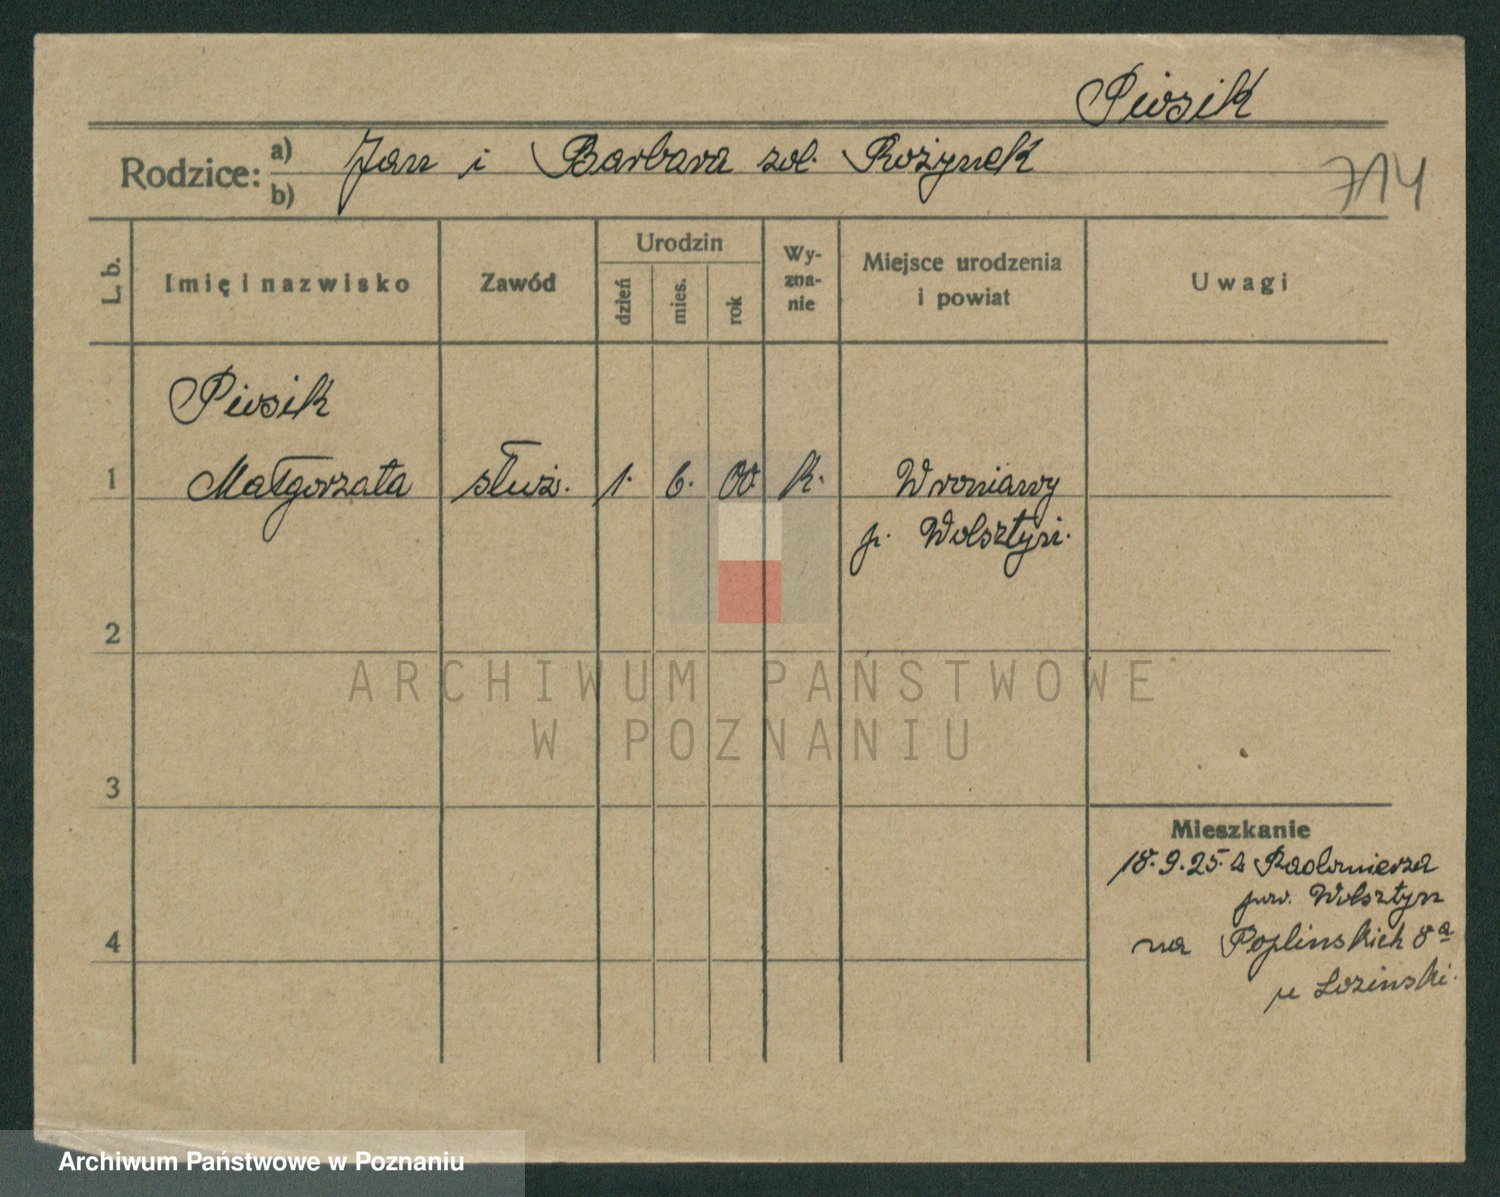 Piosik
Rodzice: a) Jan i Barbara zol. Rożynek
b)
714
L. b.
Imię i nazwisko
Zawód
Urodzin
dzień
mies.
rok
Wy-
zna-
nie
Miejsce urodzenia
i powiat
Uwagi
Piosik
1 Małgorzata służ. 1. 6. 00 k. Wroniawy
p. Wolsztyn.
2
3
4
ARCHIWUM PAŃSTWOWE
W POZNANIU
Mieszkanie
18.9.25 z Radomierza
pow. Wolsztyn
na Poplinskich 8a
u Lozinski.
Archiwum Państwowe w Poznaniu